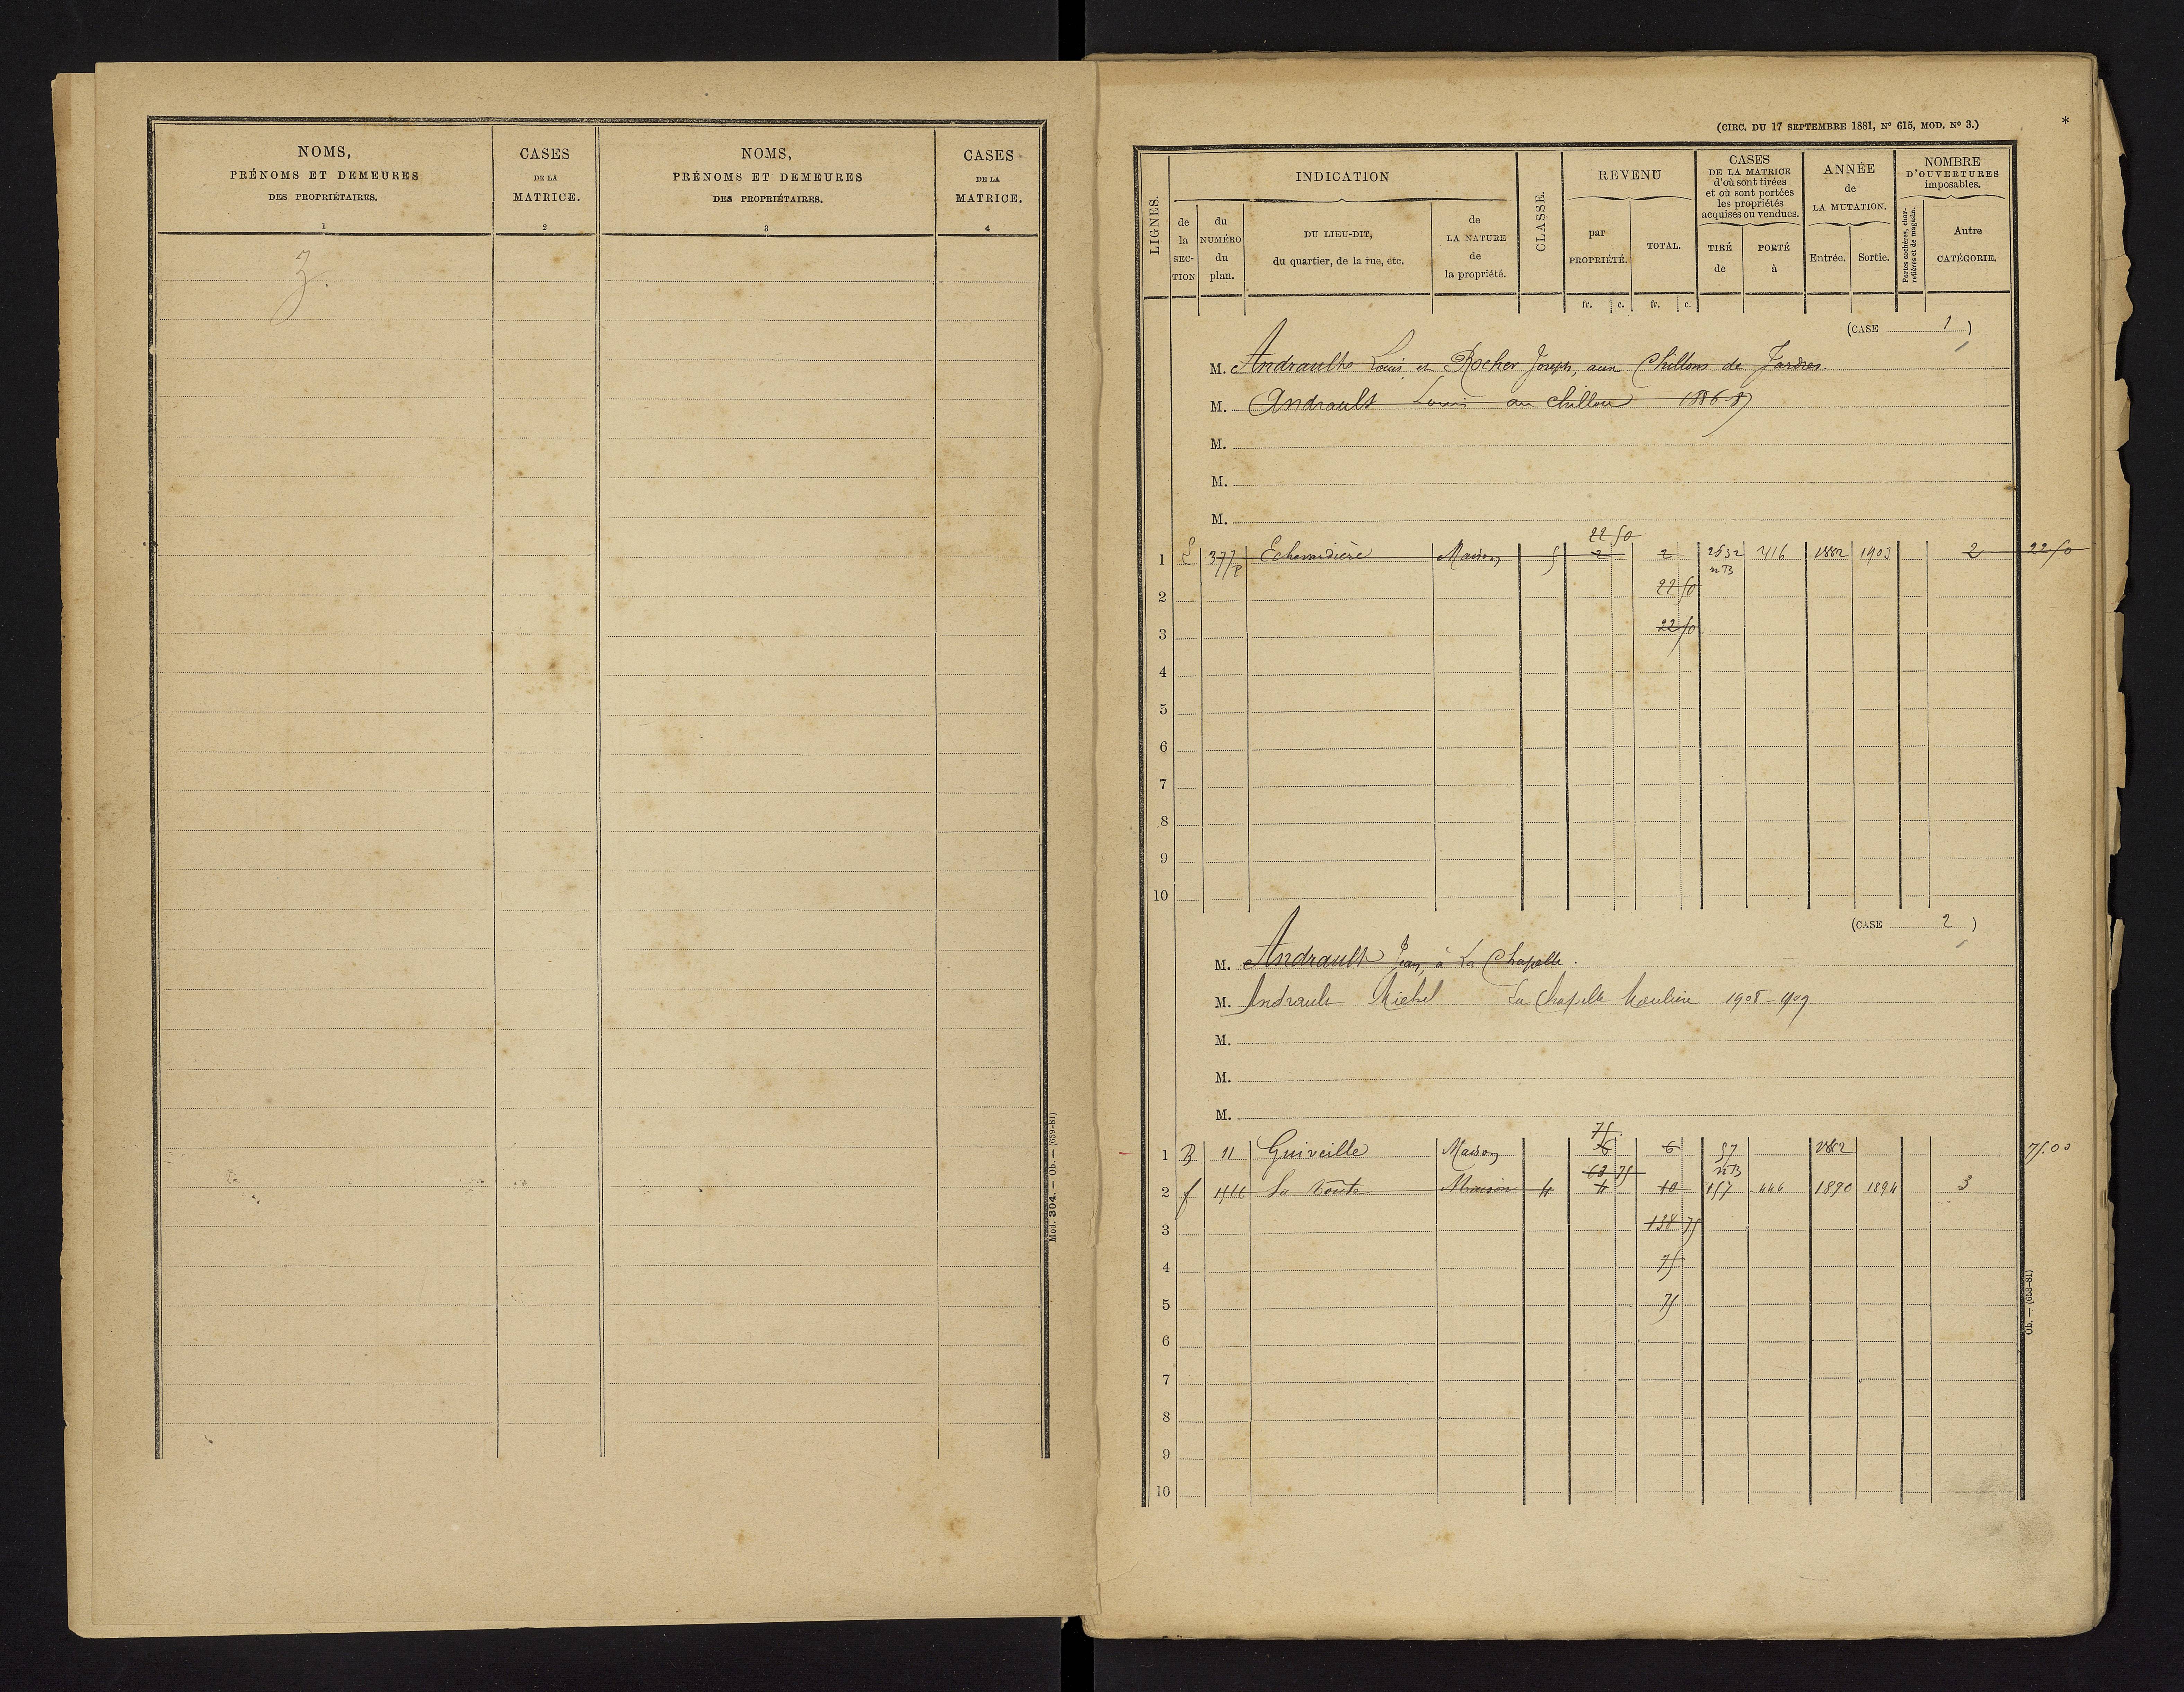 NOMS,
PRÉNOMS ET DEMEURES
DES PROPRIÉTAIRES.
1
CASES
DE LA
MATRICE.
2
NOMS,
PRÉNOMS ET DEMEURES
DES PROPRIÉTAIRES.
3
CASES
DE LA
MATRICE.
4
Z.
Mod. 304. — Ob. — (659-81)
(CIRC. DU 17 SEPTEMBRE 1881, Nº 615, MOD. Nº 3.)
*
LIGNES.
INDICATION
de la SECTION
du NUMÉRO du plan.
DU LIEU-DIT,
du quartier, de la rue, etc.
de LA NATURE de la propriété.
CLASSE.
REVENU
par PROPRIÉTÉ.
TOTAL.
fr. c. fr. c.
CASES
DE LA MATRICE
d'où sont tirées
et où sont portées
les propriétés
acquises ou vendues.
TIRÉ de
PORTÉ à
ANNÉE
de
LA MUTATION.
Entrée.
Sortie.
NOMBRE
D'OUVERTURES
imposables.
Portes cochères, charretières et de magasin.
Autre
CATÉGORIE.
(CASE 1)
M. Andraults Louis et Rocher Joseph, aux Chillons de Jardres.
M. Andrault Louis au Chillou 1886-87
M.
M.
M.
22 50
1 377 P Echevardière Maison 5 2 2 2532 416 1882 1903 2 22 50
nB
2 22 50
3 22 50
4
5
6
7
8
9
10
(CASE 2)
M. Andrault Jean, à La Chapelle.
M. Andrault Michel La Chapelle Moulière 1908-909
M.
M.
M.
75
1 B 11 Guiveille Maison 6 6 57 1882 75.00
63 75 nB
2 f La Route Maison 4 4 10 157 446 1890 1894 3
3 138 75
4 75
5 75
6
7
8
9
10
Ob. — (658-81)